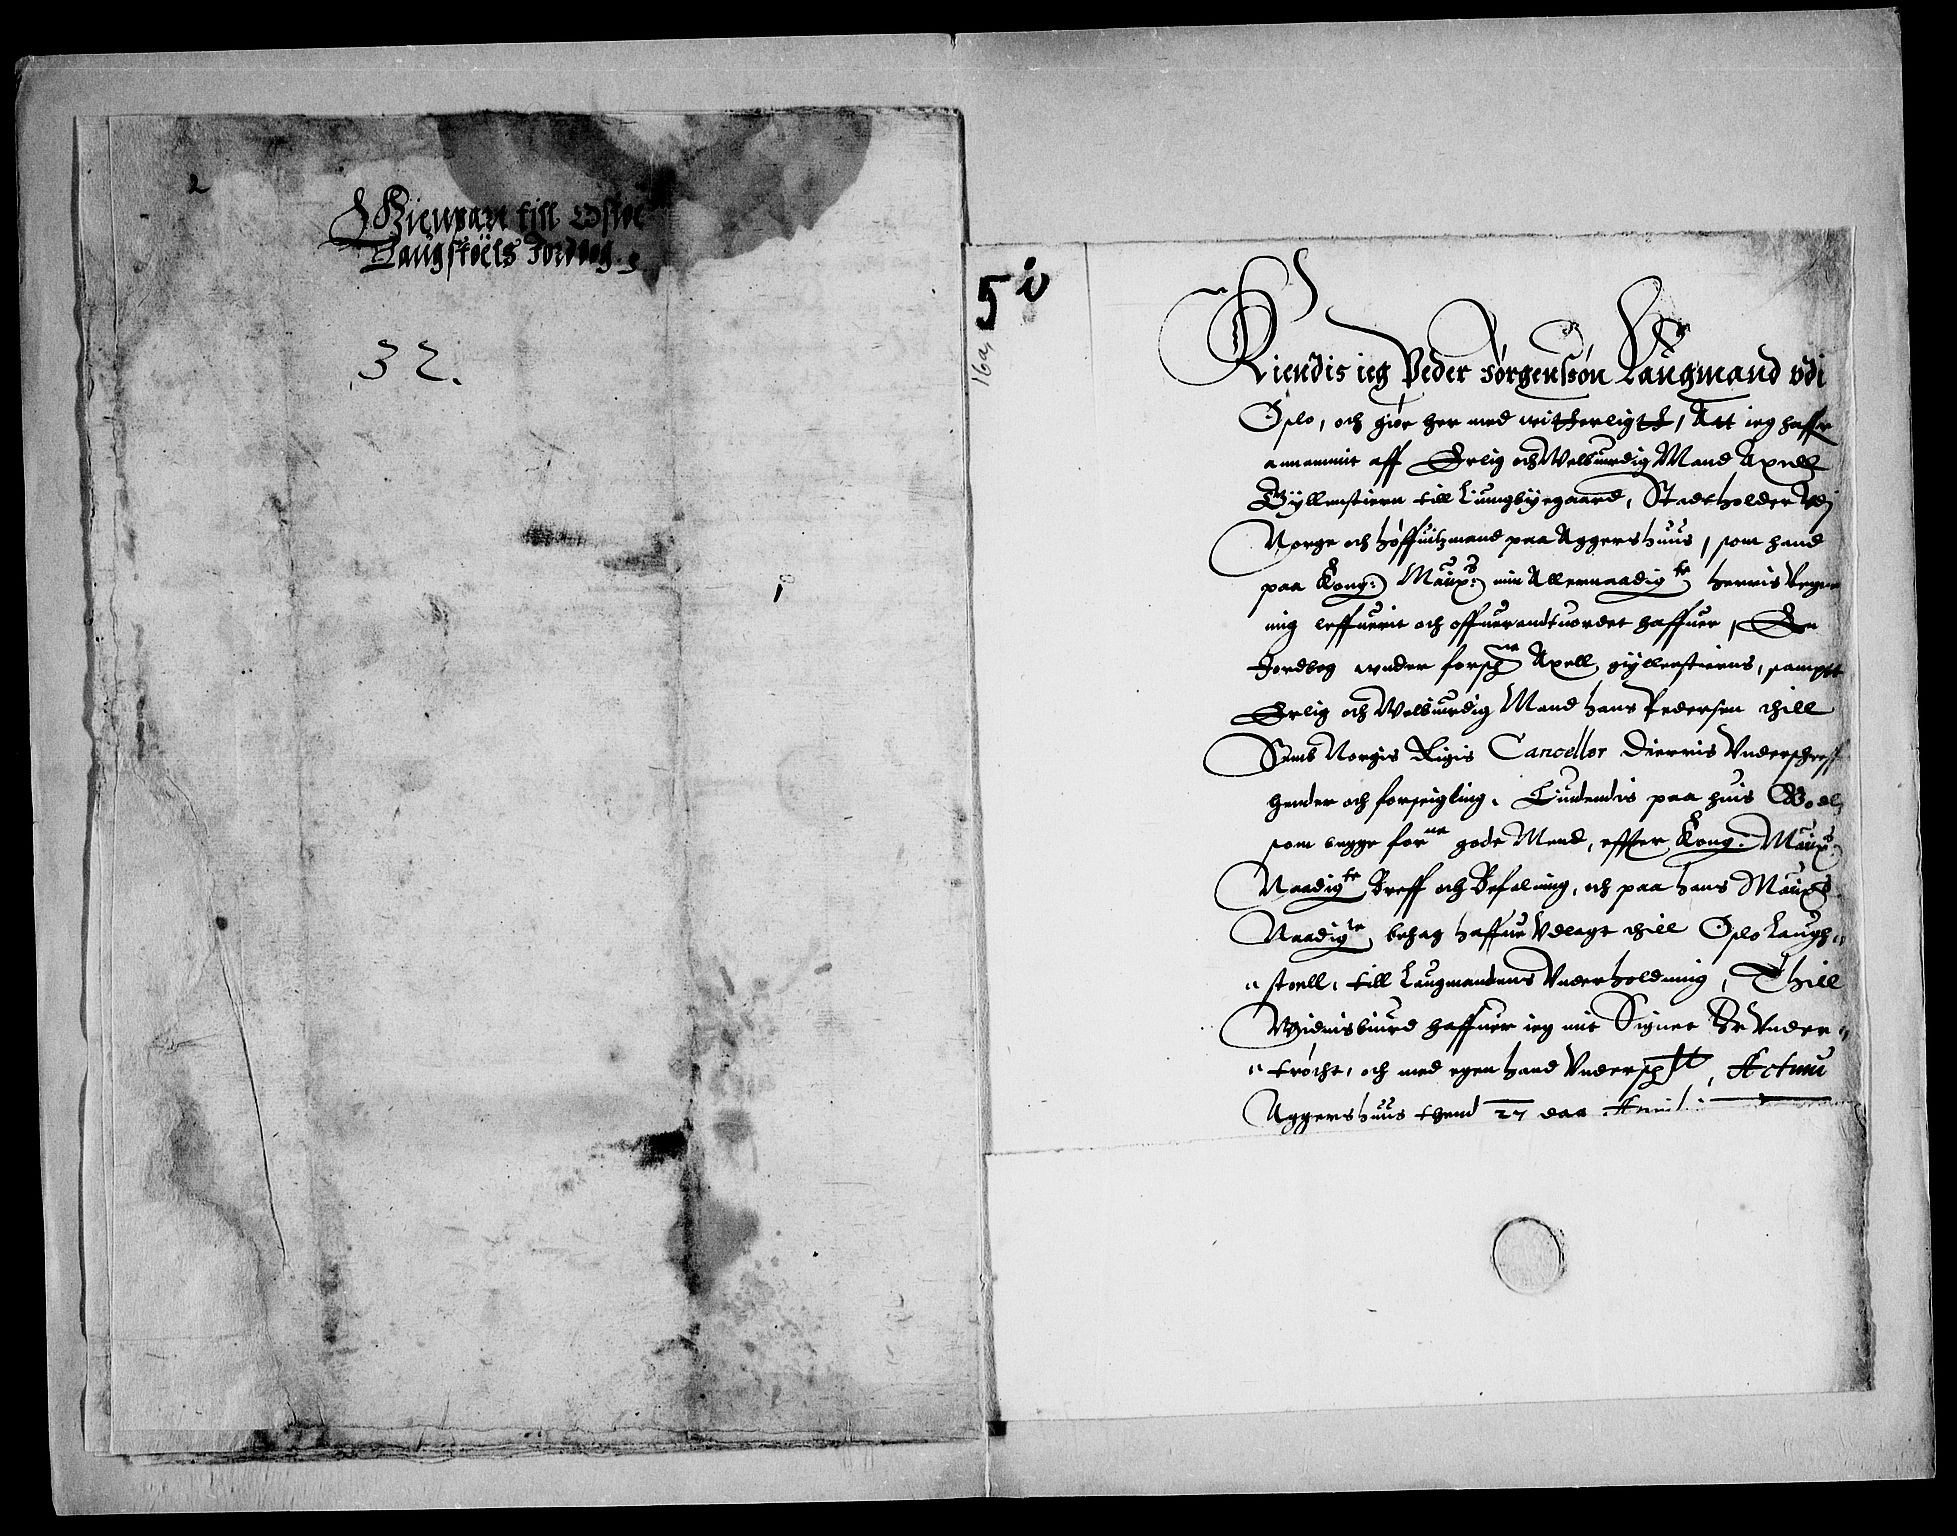 2
Gienpart till Opsloe
Laugstoels Jordbog.
32.
5 i
16a,
Kiendis ieg Peder Jörgenssön Laugmand vdi
Oplo, och giör her med witterligtt, Att ieg haffr
annammit aff Erlig och Welburdig Mand Axell
Gyllenstiern till Liungbyegaard, Stadtholder Vdj
Norge och höffuitzmand paa Aggershuus, som hand
paa Kong: Maiyts: min Allernaadigste herris Vegne
mig leffuerit och offuerandtuordet haffuer, En
Jordbog wnder forsch:ne Axell gyllenstierns, sampt
Erlig och Welburdig Mand hans Pedersen thill
Semb Norgis Rigis Cancellor Dierris Vnderschreff
hender och forseigling. Liudendis paa huis Godz,
som begge for:ne gode Mend, effter Kong: Maiyts:
Naadigste Breff och Befalning, och paa hans Maiyts
Naadigste behag haffue Vdlagt thill Oplo Laugh-
stoell, till Laugmandens Vnderholdning, Thill
Widnisbiurd haffuer ieg mit Signet her Vnder-
tröcht, och med egen hand Vnderschreffuit, Actum
Aggershuus thend 27 daa Aprilis